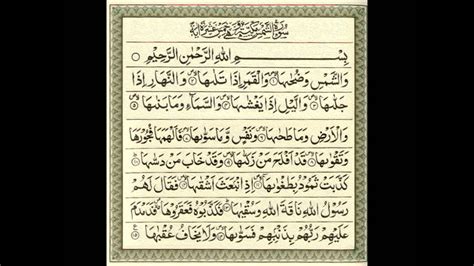 سورة الشمس مكية وهي خمس عشرة آية
بِسْمِ اللهِ الرَّحْمٰنِ الرَّحِيْمِ
وَالشَّمْسِ وَضُحٰىهَا ۪ۙ وَالْقَمَرِ اِذَا تَلٰىهَا ۪ۙ وَالنَّهَارِ اِذَا
جَلّٰىهَا ۪ۙ وَالَّيْلِ اِذَا يَغْشٰىهَا ۪ۙ وَالسَّمَآءِ وَمَا بَنٰىهَا
وَالْاَرْضِ وَمَا طَحٰىهَا ۪ۙ وَنَفْسٍ وَّمَا سَوّٰىهَا ۪ۙ فَاَلْهَمَهَا فُجُوْرَهَا
وَتَقْوٰىهَا ۪ۙ قَدْ اَفْلَحَ مَنْ زَكّٰىهَا ۪ۙ وَقَدْ خَابَ مَنْ دَسّٰىهَا
كَذَّبَتْ ثَمُوْدُ بِطَغْوٰىهَا ۪ۙ اِذِ انْۢبَعَثَ اَشْقٰىهَا ۪ۙ فَقَالَ لَهُمْ
رَسُوْلُ اللهِ نَاقَةَ اللهِ وَسُقْيٰهَا ۪ۙ فَكَذَّبُوْهُ فَعَقَرُوْهَا ۪ۙ فَدَمْدَمَ
عَلَيْهِمْ رَبُّهُمْ بِذَنْۢبِهِمْ فَسَوّٰىهَا ۪ۙ وَلَا يَخَافُ عُقْبٰهَا